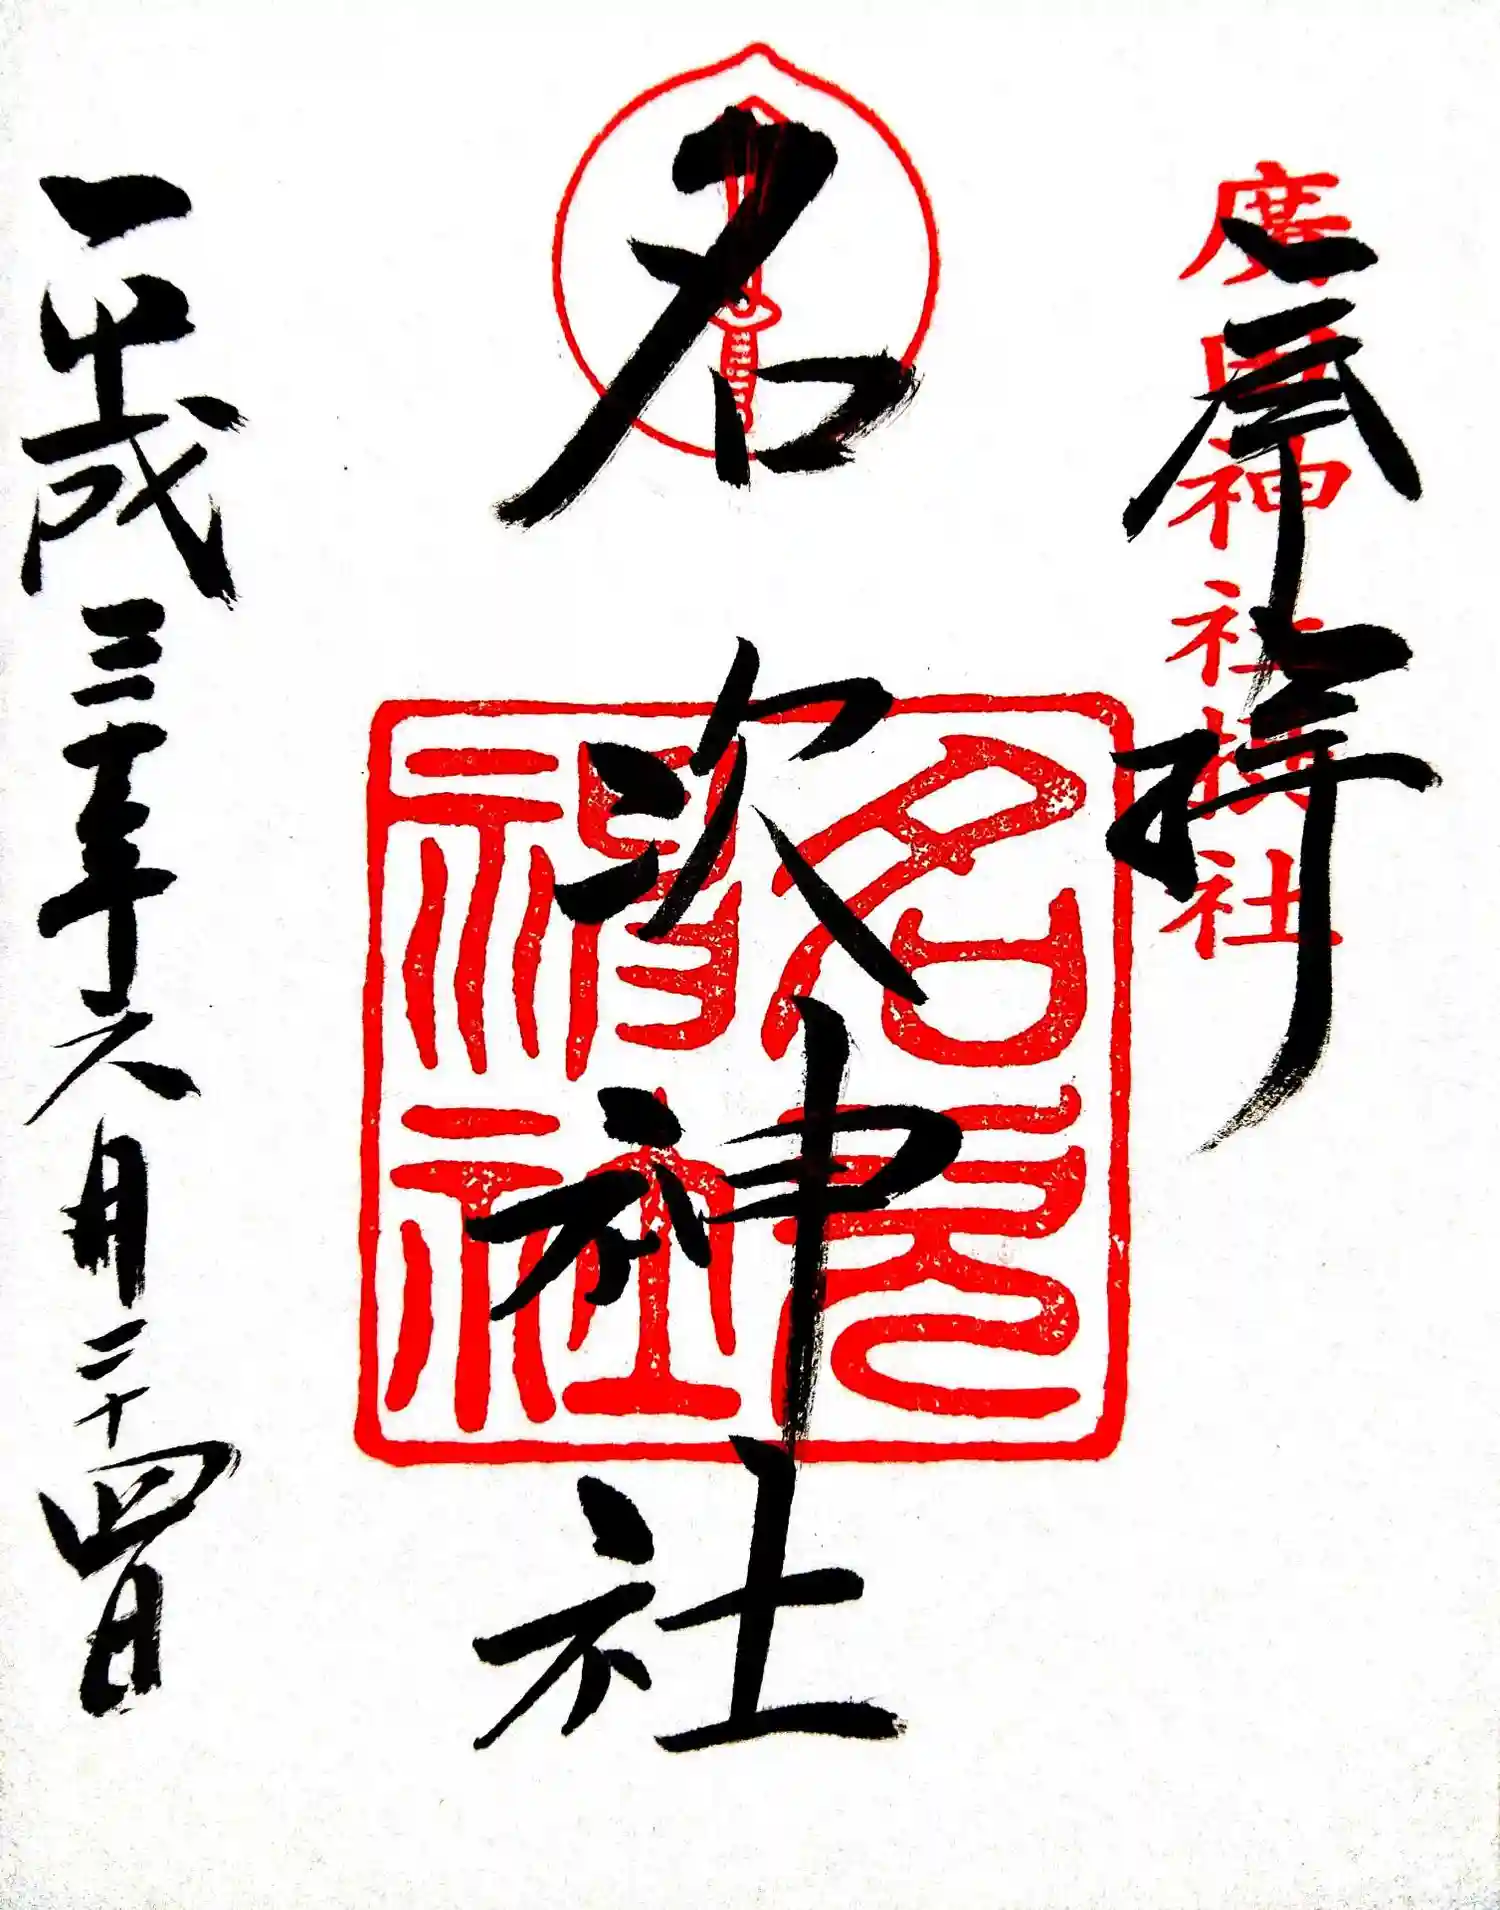 奉拝
廣田神社摂社
名次神社
名次神社
平成三十年六月二十四日